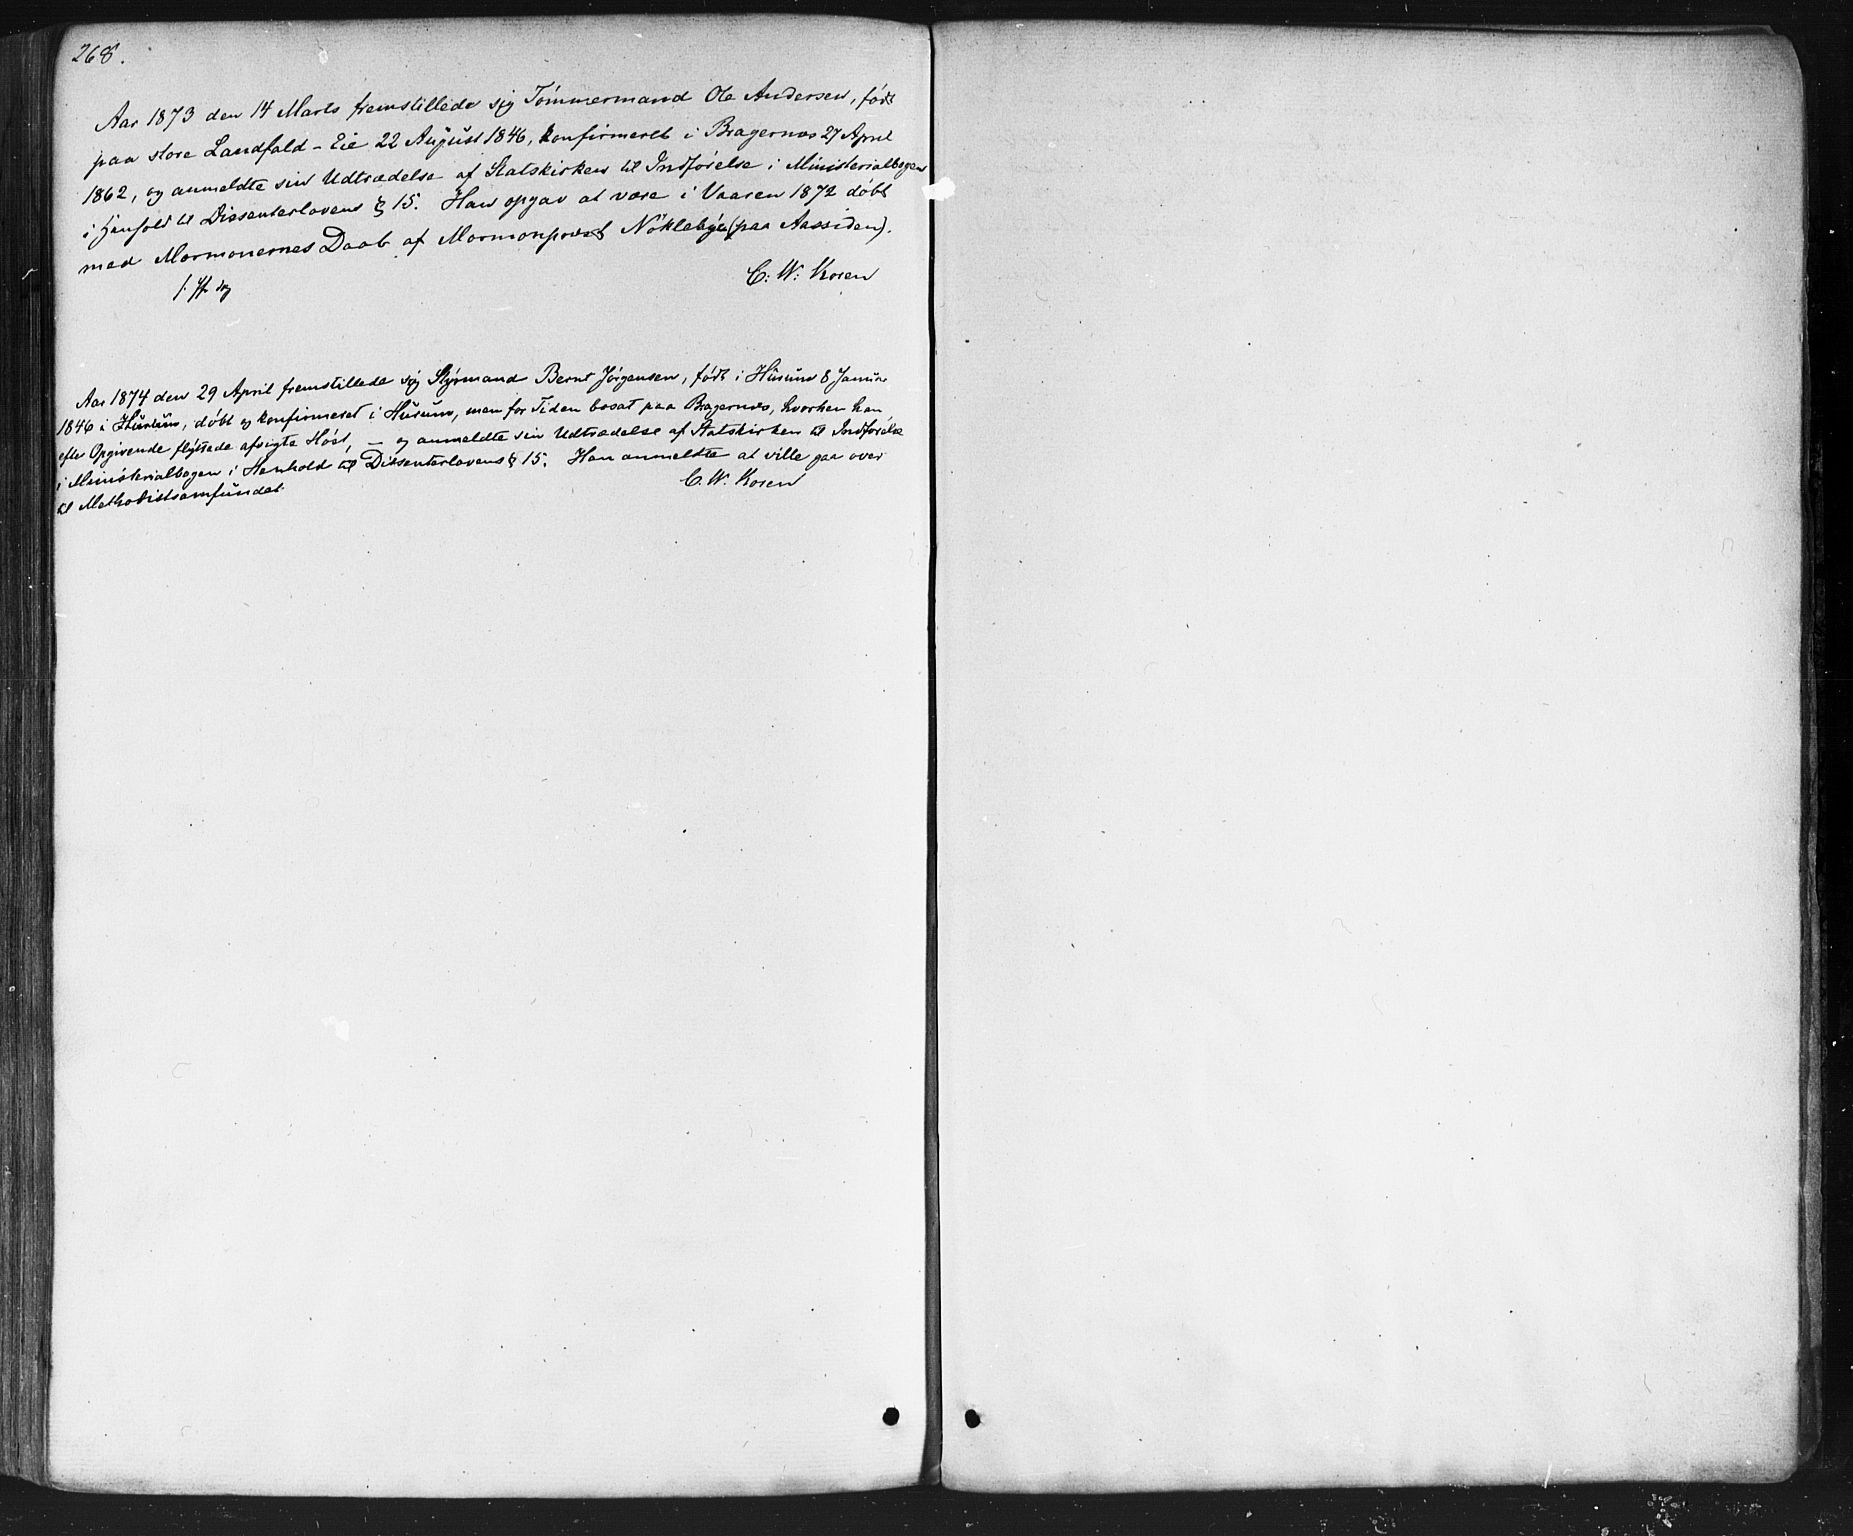 268.
Aar 1873 den 14 Marts fremstillede sig Tömmermand Ole Andersen, født
paa store Landfald - Eie 22 August 1846, konfirmeret i Bragernæs 27 April
1862, og anmeldte sin Udtrædelse af Statskirken til Indförelse i Ministerialbogen
i Henhold til Dissenterloven § 15. Han opgav at være i Vaaren 1872 döbt
med Mormonernes Daab af Mormonpræst Nökleby (paa Aassiden).
C. W. Rosen
Aar 1874 den 29 April fremstillede sig Styrmand Bernt Jörgensen, født i Hurum 8 Januar
1846 i Hurum, döbt og konfirmeret i Hurum, men for Tiden bosat paa Bragernæs, hvorhen han
efter Opgivende flyttede afvigte Höst, - og anmeldte sin Udtrædelse af Statskirken til Indförelse
i Ministerialbogen i Henhold til Dissenterlovens § 15. Han anmeldte at ville gaa over
til Methodistsamfundet.
C. W. Rosen